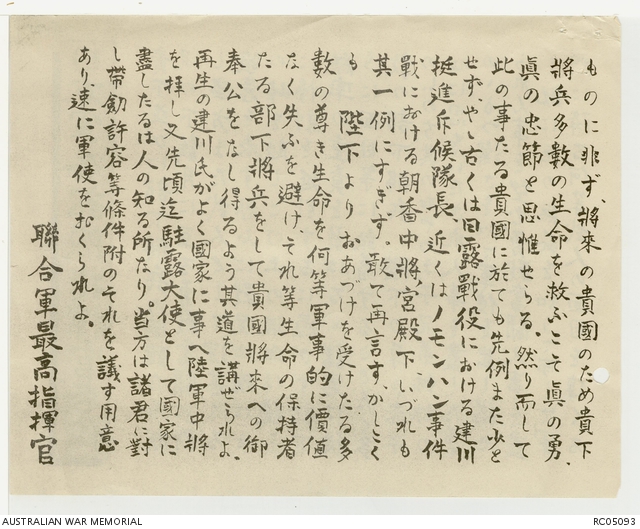 ものに非ず、將來の貴國のため貴下
將兵多數の生命を救ふこそ眞の勇、
眞の忠節と思惟せらる、然り而して
此の事たる貴國に於ても先例また少と
せず、やゝ古くは日露戰役における建川
挺進斥候隊長、近くはノモンハン事件
戰における朝香中將宮殿下、いづれも
其一例にすぎず。敢て再言す、かしこく
も 陛下よりおあづけを受けたる多
數の尊き生命を何等軍事的に價値
なく失ふを避け、それ等生命の保持者
たる部下將兵をして貴國將來への御
奉公をなし得るよう其道を講ぜられよ。
再生の建川氏がよく國家に事へ陸軍中將
を拝し又先頃迄駐露大使として國家に
盡したるは人の知る所たり。当方は諸君に對
し帶劔許容等條件附のそれを議す用意
あり、速に軍使をおくられよ。
聯合軍最高指揮官
AUSTRALIAN WAR MEMORIAL
RC05093